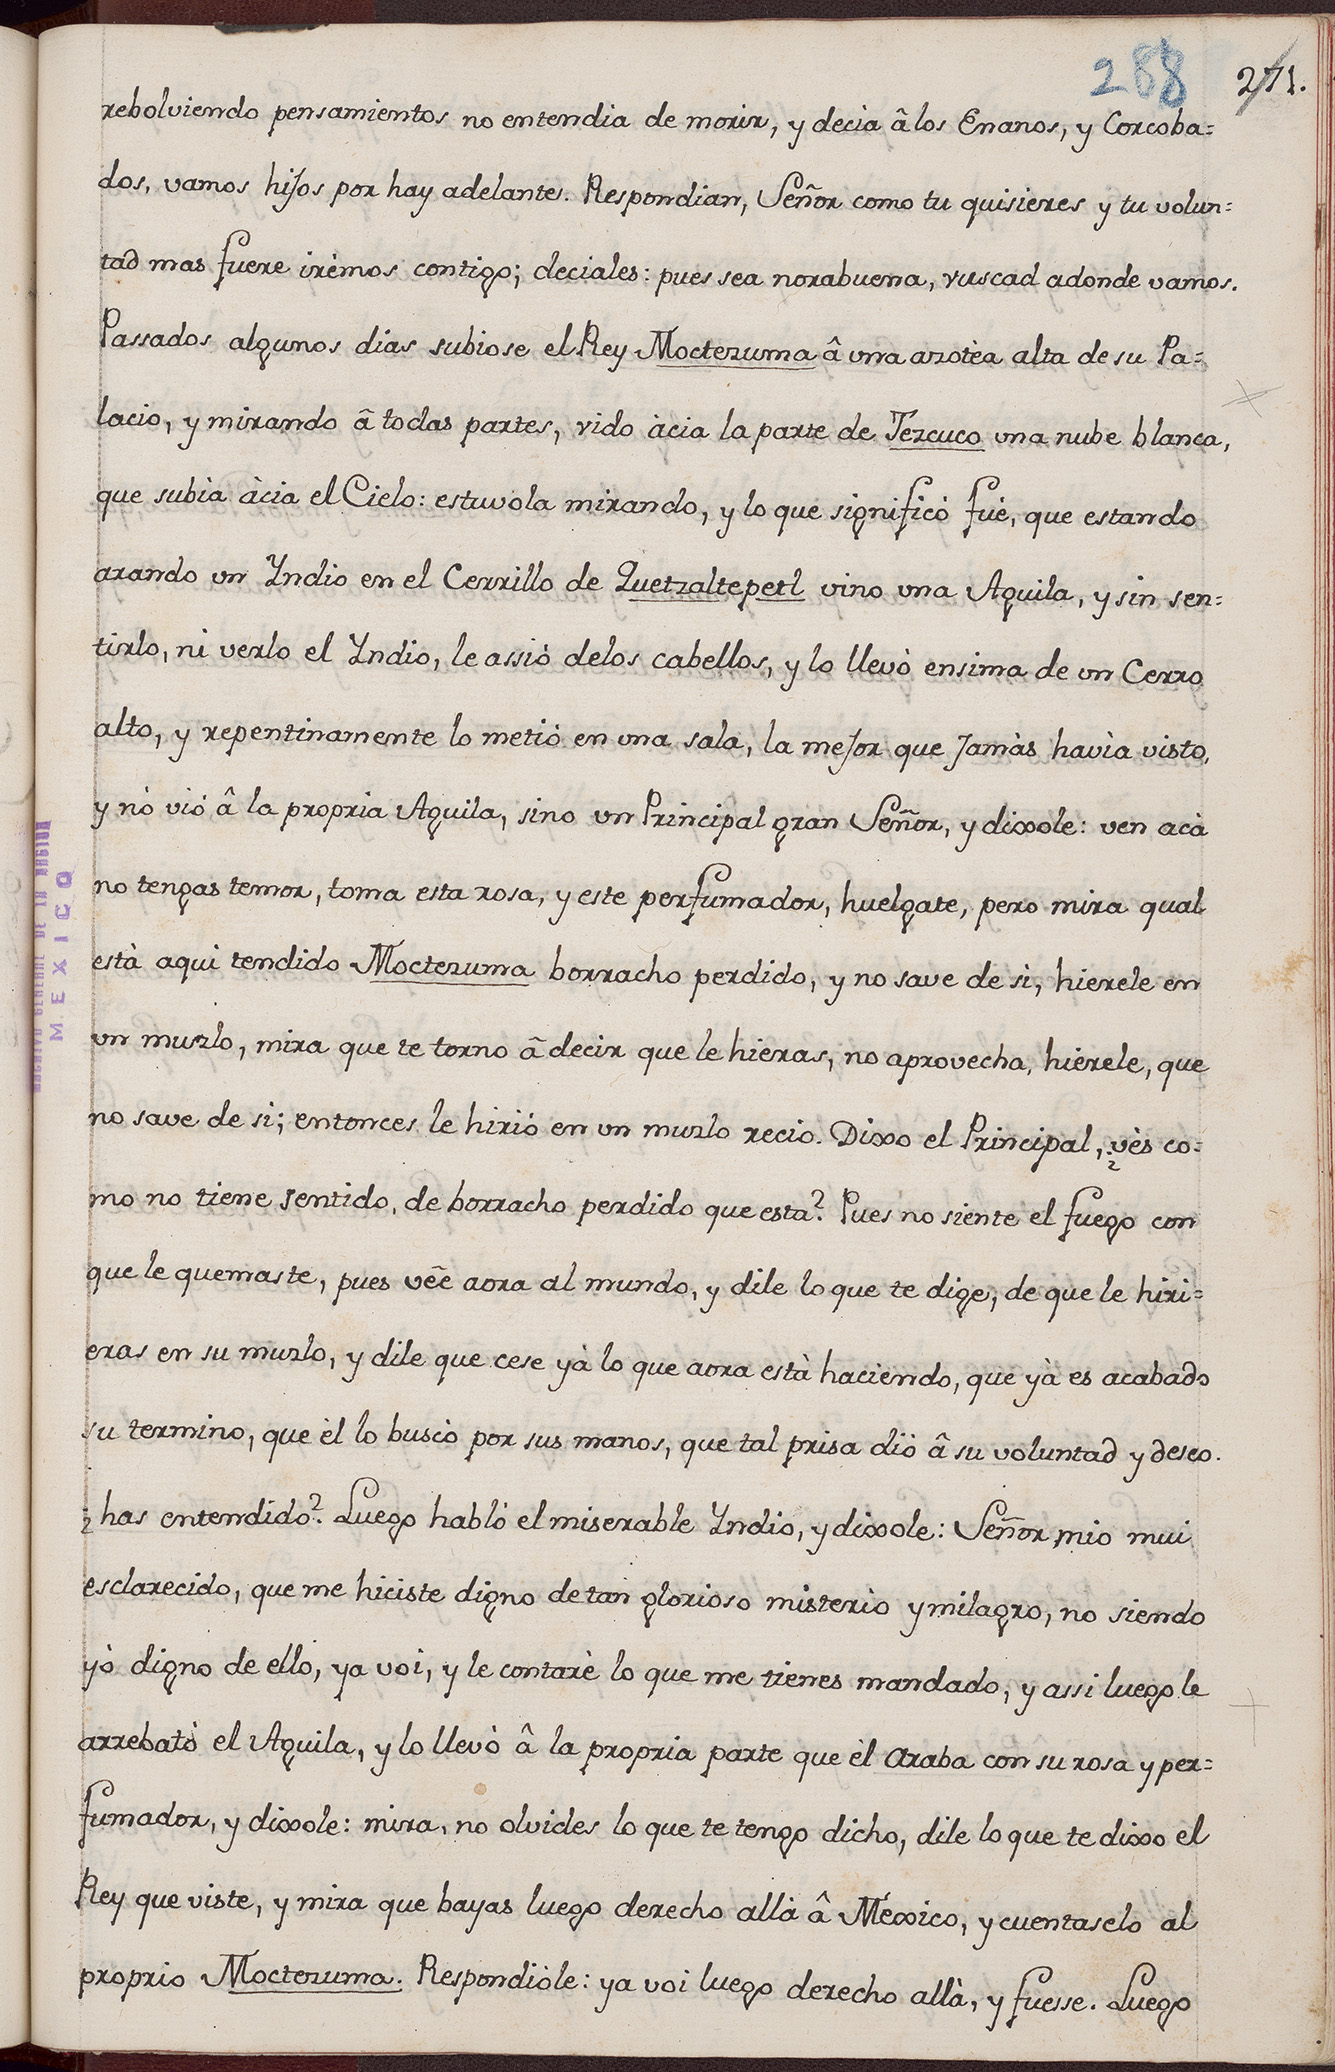 288 271.
rebolviendo pensamientos no entendia de morir, y decia â los Enanos, y Corcoba=
dos, vamos hijos por hay adelantes. Respondian, Señor como tu quisieres y tu volun=
tad mas fuere irèmos contigo; deciales: pues sea norabuena, vuscad adonde vamos.
Passados algunos dias subiose el Rey Moctezuma â una azotèa alta de su Pa=
lacio, y mirando â todas partes, vido àcia la parte de Tezcuco una nube blanca,
que subìa àcia el Cielo: estuvola mirando, y lo que significó fuè, que estando
arando un Yndio en el Cerrillo de Quetzaltepetl vino una Aguila, y sin sen=
tirlo, ni verlo el Yndio, le assió delos cabellos, y lo llevò ensima de un Cerro
alto, y repentinamente lo metió en una sala, la mejor que Jamàs havìa visto,
y nò vió â la propria Aguila, sino un Principal gran Señor, y dixole: ven acà
no tengas temor, toma esta rosa, y este perfumador, huelgate, pero mira qual
està aqui tendido Moctezuma borracho perdido, y no save de sì, hierele en
un muzlo, mira que te torno â decir que le hieras, no aprovecha, hièrele, que
no save de sì; entonces le hirió en un muzlo recio. Dixo el Principal, ¿vès co=
mo no tiene sentido, de borracho perdido que esta? Pues no siente el fuego con
que le quemaste, pues vêe aora al mundo, y dile lo que te dige, de que le hiri=
eras en su muzlo, y dile que cese yà lo que aora està haciendo, que yà es acabado
su termino, que èl lo buscò por sus manos, que tal prisa dió â su voluntad y deseo.
¿has entendido? Luego habló el miserable Yndio, y dixole: Señor mio mui
esclarecido, que me hiciste digno de tan glorioso misterìo y milagro, no siendo
yò digno de ello, ya voi, y le contarè lo que me tienes mandado, y assi luego le
arrebatò el Aguila, y lo llevò â la propria parte que èl araba con su rosa y per=
fumador, y dixole: mira, no olvides lo que te tengo dicho, dile lo que te dixo el
Rey que viste, y mira que bayas luego derecho allà â Mexico, y cuentaselo al
proprio Moctezuma. Respondióle: ya voi luego derecho allà, y fuesse. Luego
ARCHIVO GENERAL DE LA NACION
MEXICO